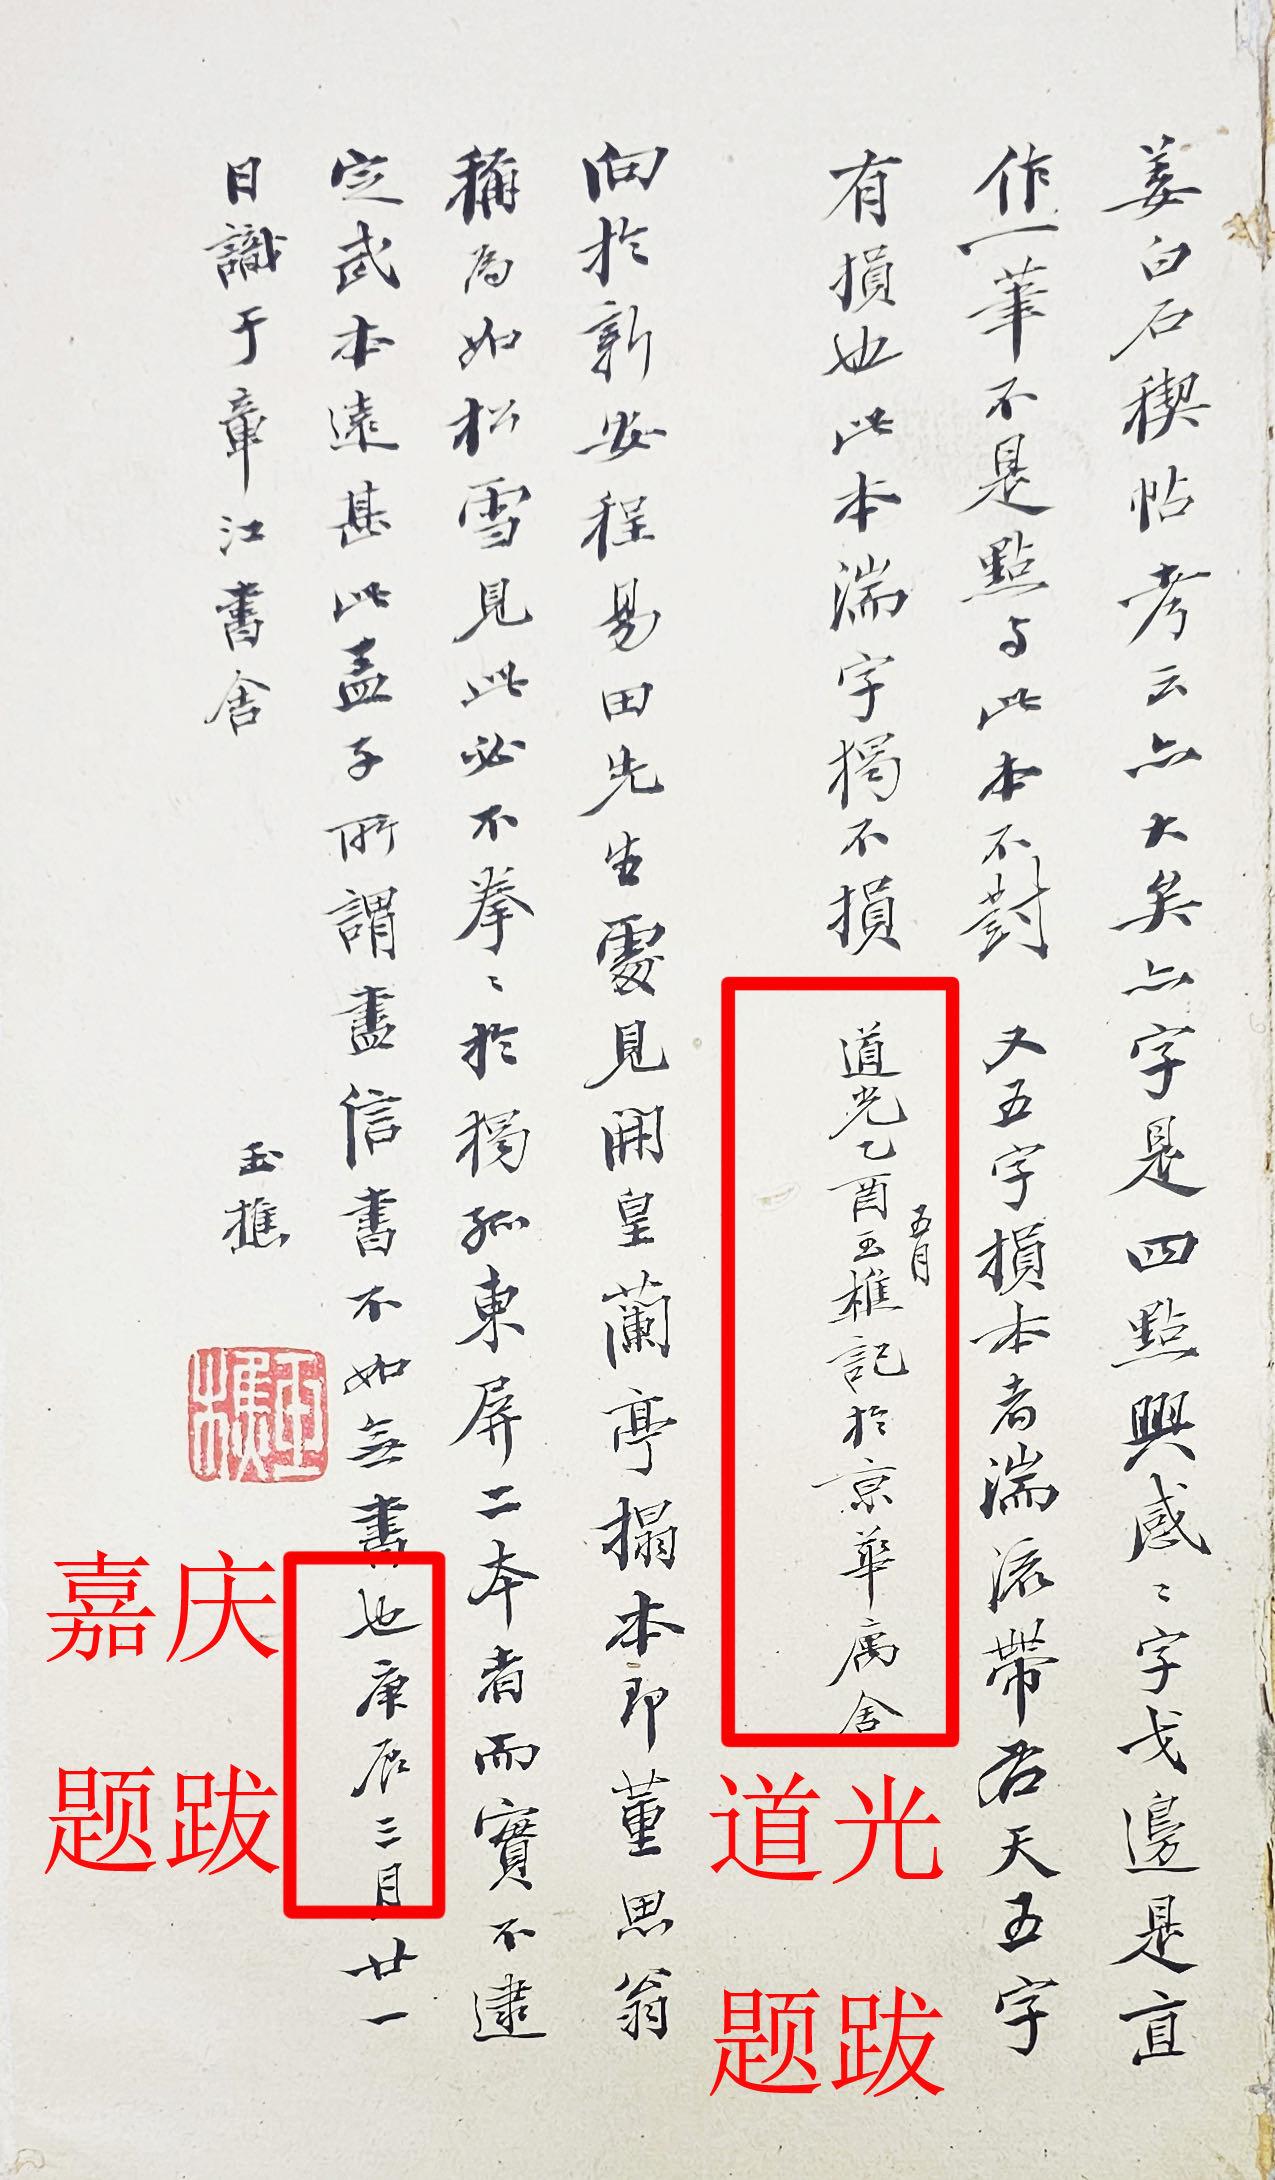 姜白石稧帖考云亦大矣亦字是四點興感二字戈邊是直
作一筆不是點與此本不對 又五字損本者湍流帶右天五字
有損也此本湍字獨不損 道光乙酉玉樵記於京華寓舍
五月
向於新安程易田先生處見開皇蘭亭搨本即董思翁
稱為如松雪見此必不拳〻於獨孤東屏二本者而實不逮
定武本遠甚此孟子所謂盡信書不如無書也庚辰二月廿一
日識于章江書舍 玉樵
玉樵
道光
题跋
嘉庆
题跋